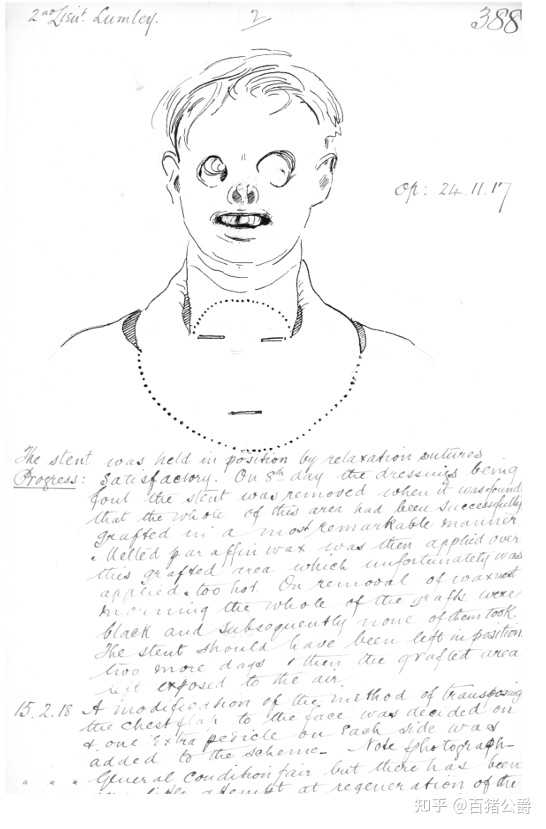 2nd Lieut. Lumley.
2
388
Op: 24.11.17
The stent was held in position by relaxation sutures
Progress: Satisfactory. On 8th day the dressings being
foul the stent was removed when it was found
that the whole of this area had been successfully
grafted in a most remarkable manner
. Melted paraffin wax was then applied over
this grafted area which unfortunately was
applied too hot. On removal of wax next
morning the whole of the grafts were
black and subsequently none of them took
The stent should have been left in position
two more days & then the grafted area
exposed to the air.
15.2.18 A modification of the method of transposing
the chest flap to the face was decided on
& one extra pedicle on each side was
added to the scheme. Note photograph
" " " General condition fair but there has been
attempt at regeneration of the
知乎 @百猪公爵